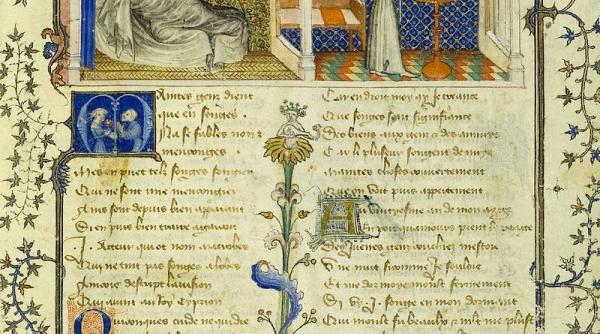 Maintes gens dient
que en songes
Na se fables non
mensonges
Mes on puet telz songes songier
Qui ne sont mie mensongier
Ains sont depuis bien apparant
Si en puis bien traire a garant
J. Acteur qui ot non macrobes
Qui ne tint pas songes a lobes
Qui avint au roy Cyprion
Quiconques cuide ne qui die
Car endroit moy ay je creance
Que songes sont signifiance
Des biens aux gens et des annuys
Car li plusieur songent de nuys
Maintes choses couvertement
Que on voit puis appertement
Au vintiesme an de mon aage
Ou point qu'amours prent le paage
Des jeunes gens couchiez mestoie
Une nuit si comme je souloie
Et me dormoye moult forment
Si vy .j. songe en mon dormant
Qui moult fu beaulx et moult me plust